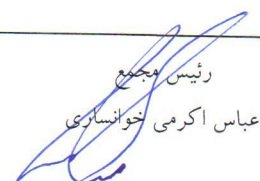 رئیس مجمع
عباس اکرمی خوانساری